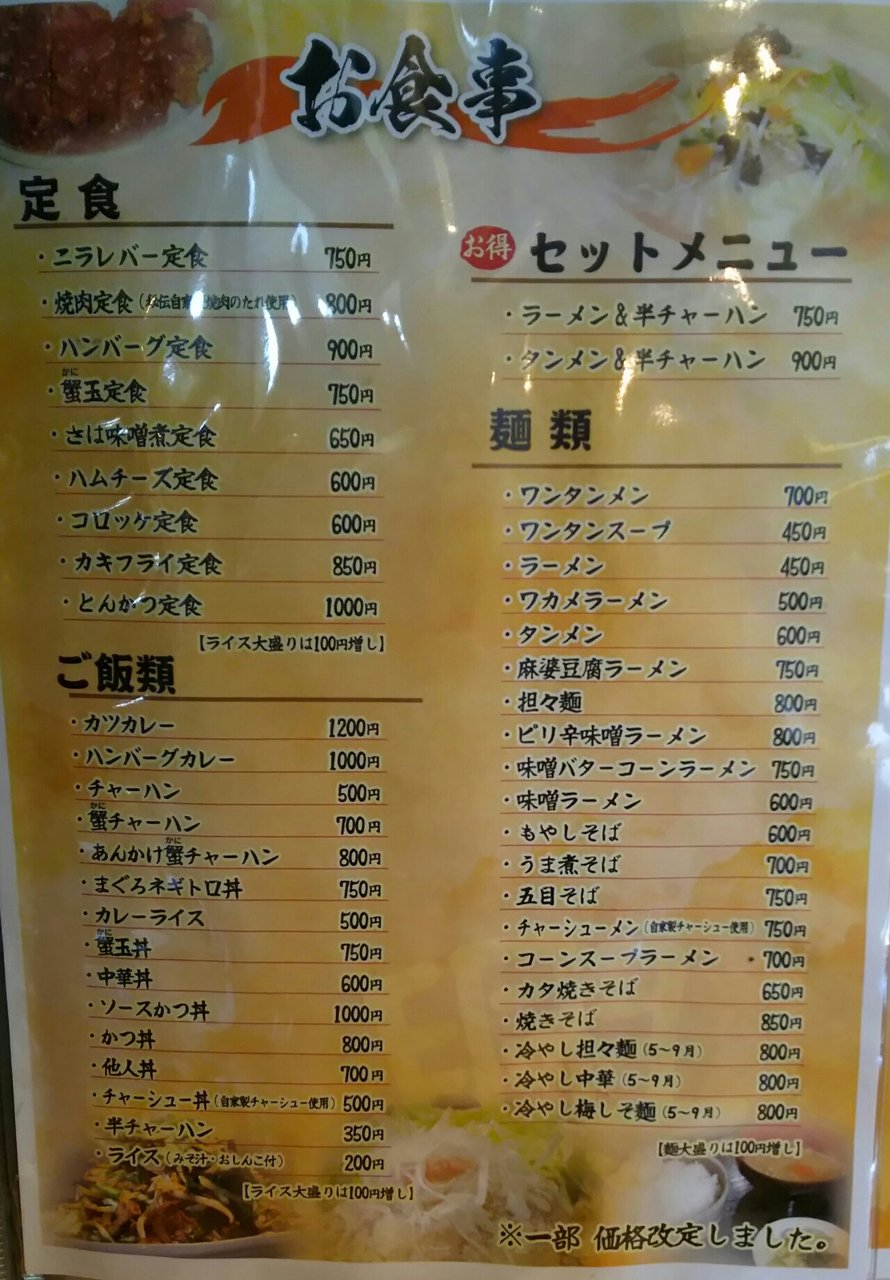 お食事
定食
・ニラレバー定食 750円
・焼肉定食(秘伝自家 焼肉のたれ使用) 800円
・ハンバーグ定食 900円
かに
・蟹玉定食 750円
・さば味噌煮定食 650円
・ハムチーズ定食 600円
・コロッケ定食 600円
・カキフライ定食 850円
・とんかつ定食 1000円
【ライス大盛りは100円増し】
ご飯類
・カツカレー 1200円
・ハンバーグカレー 1000円
・チャーハン 500円
かに
・蟹チャーハン 700円
かに
・あんかけ蟹チャーハン 800円
・まぐろネギトロ丼 750円
・カレーライス 500円
かに
・蟹玉丼 750円
・中華丼 600円
・ソースかつ丼 1000円
・かつ丼 800円
・他人丼 700円
・チャーシュー丼(自家製チャーシュー使用) 500円
・半チャーハン 350円
・ライス(みそ汁・おしんこ付) 200円
【ライス大盛りは100円増し】
お得 セットメニュー
・ラーメン&半チャーハン 750円
・タンメン&半チャーハン 900円
麺類
・ワンタンメン 700円
・ワンタンスープ 450円
・ラーメン 450円
・ワカメラーメン 500円
・タンメン 600円
・麻婆豆腐ラーメン 750円
・担々麺 800円
・ピリ辛味噌ラーメン 800円
・味噌バターコーンラーメン 750円
・味噌ラーメン 600円
・もやしそば 600円
・うま煮そば 700円
・五目そば 750円
・チャーシューメン(自家製チャーシュー使用) 750円
・コーンスープラーメン ・700円
・カタ焼きそば 650円
・焼きそば 850円
・冷やし担々麺(5〜9月) 800円
・冷やし中華(5〜9月) 800円
・冷やし梅しそ麺(5〜9月) 800円
【麺大盛りは100円増し】
※一部 価格改定しました。